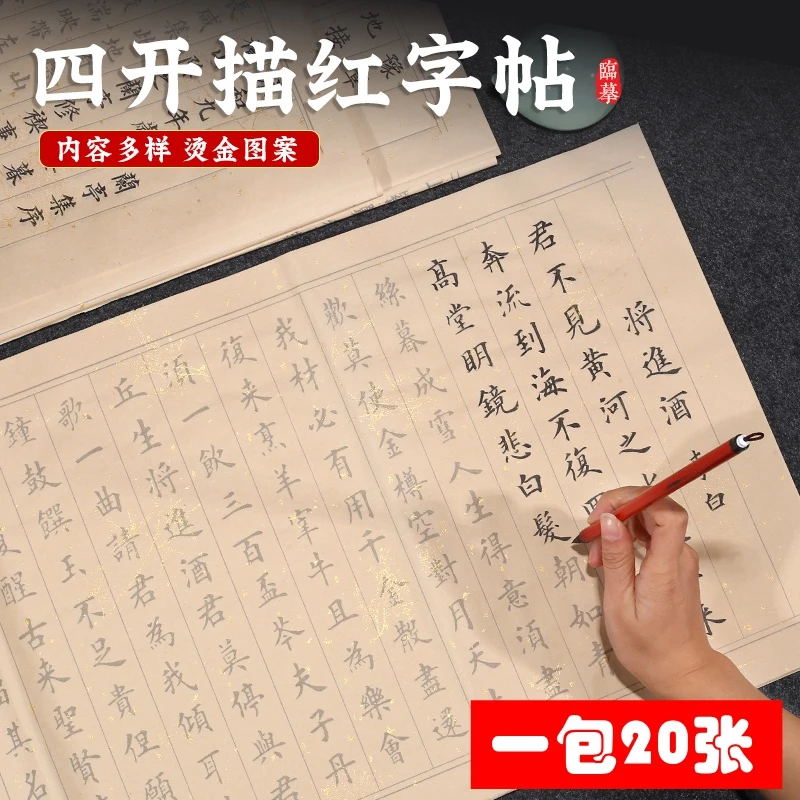 四开描红字帖
臨摹
内容多样 烫金图案
蘭亭集序
九年
將進酒
李白
君不見黃河之
來
奔流到海不復
高堂明鏡悲白髮朝如青
絲暮成雪人生得意須盡
歡莫使金樽空對月天
我材必有用千金散盡還
復来烹羊宰牛且為樂會
須一飲三百盃岑夫子丹
丘生將進酒君莫停與君
歌一曲請君為我傾耳
鐘鼓饌玉不足貴但願
醒古来聖賢
其名
一包20张